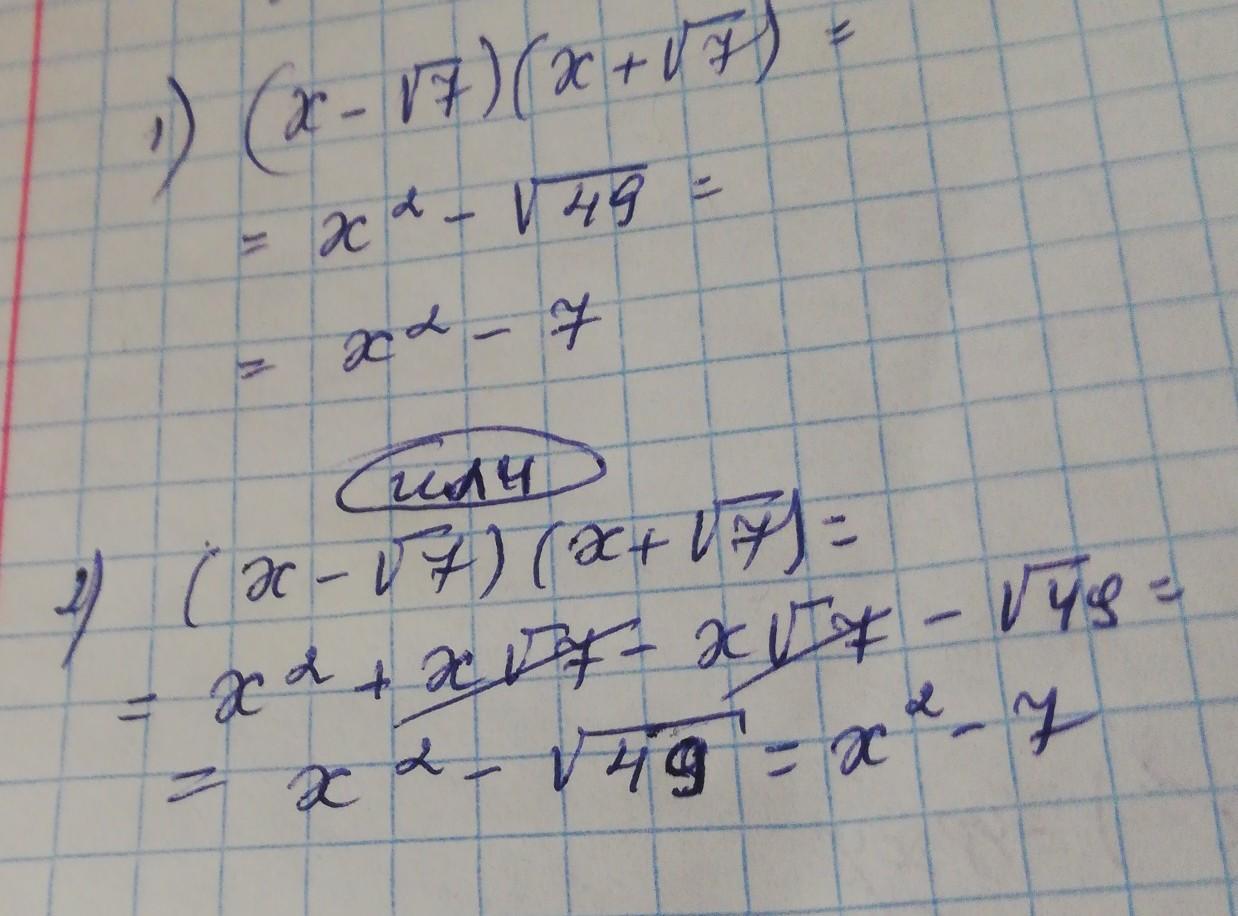 1) (x - √7)(x + √7) =
= x² - √49 =
= x² - 7
или
2) (x - √7)(x + √7) =
= x² + x√7 - x√7 - √49 =
= x² - √49 = x² - 7